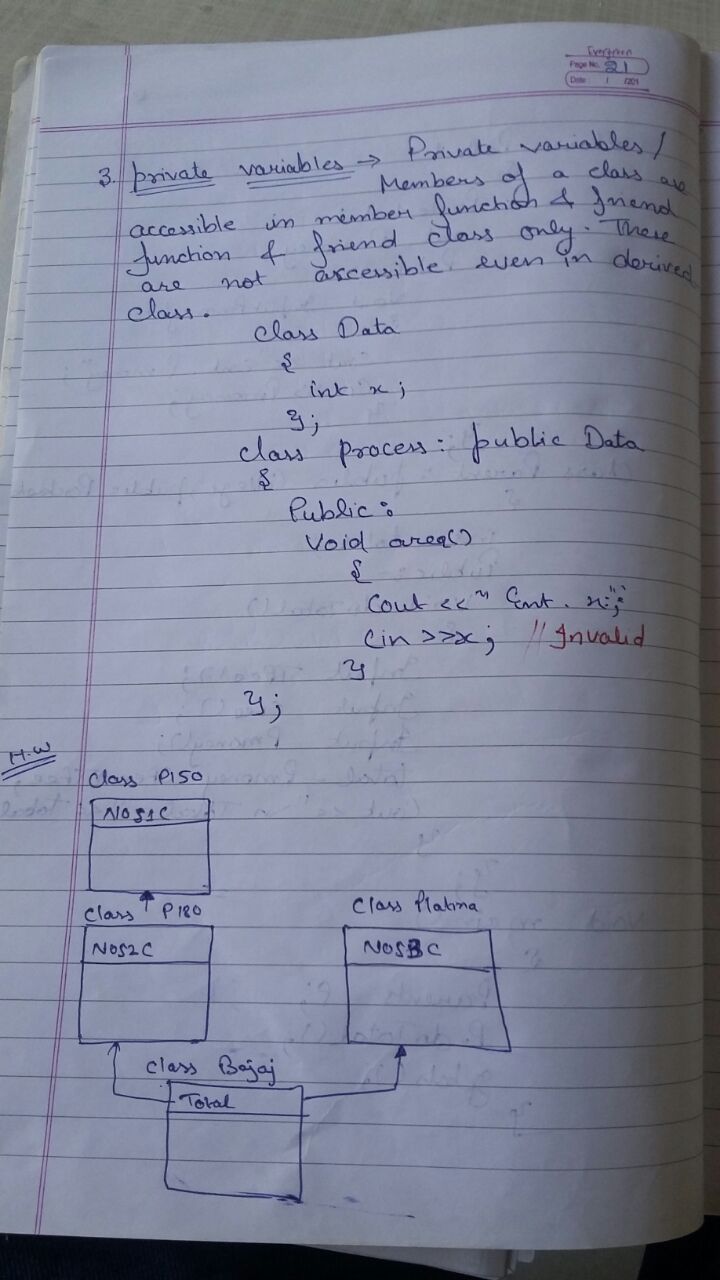 Evergreen
Page No. 21
Date: / /201
3. private variables → Private variables /
Members of a class are
accessible in member function & friend
function & friend class only. These
are not accessible even in derived
class.
class Data
{
int x;
};
class process: public Data
{
Public:
void area()
{
cout <<" Ent. x:";
cin >>x; // Invalid
}
};
H.W
class P150
NOS1C
class P180
class Platina
NOS2C
NOS3C
class Bajaj
Total